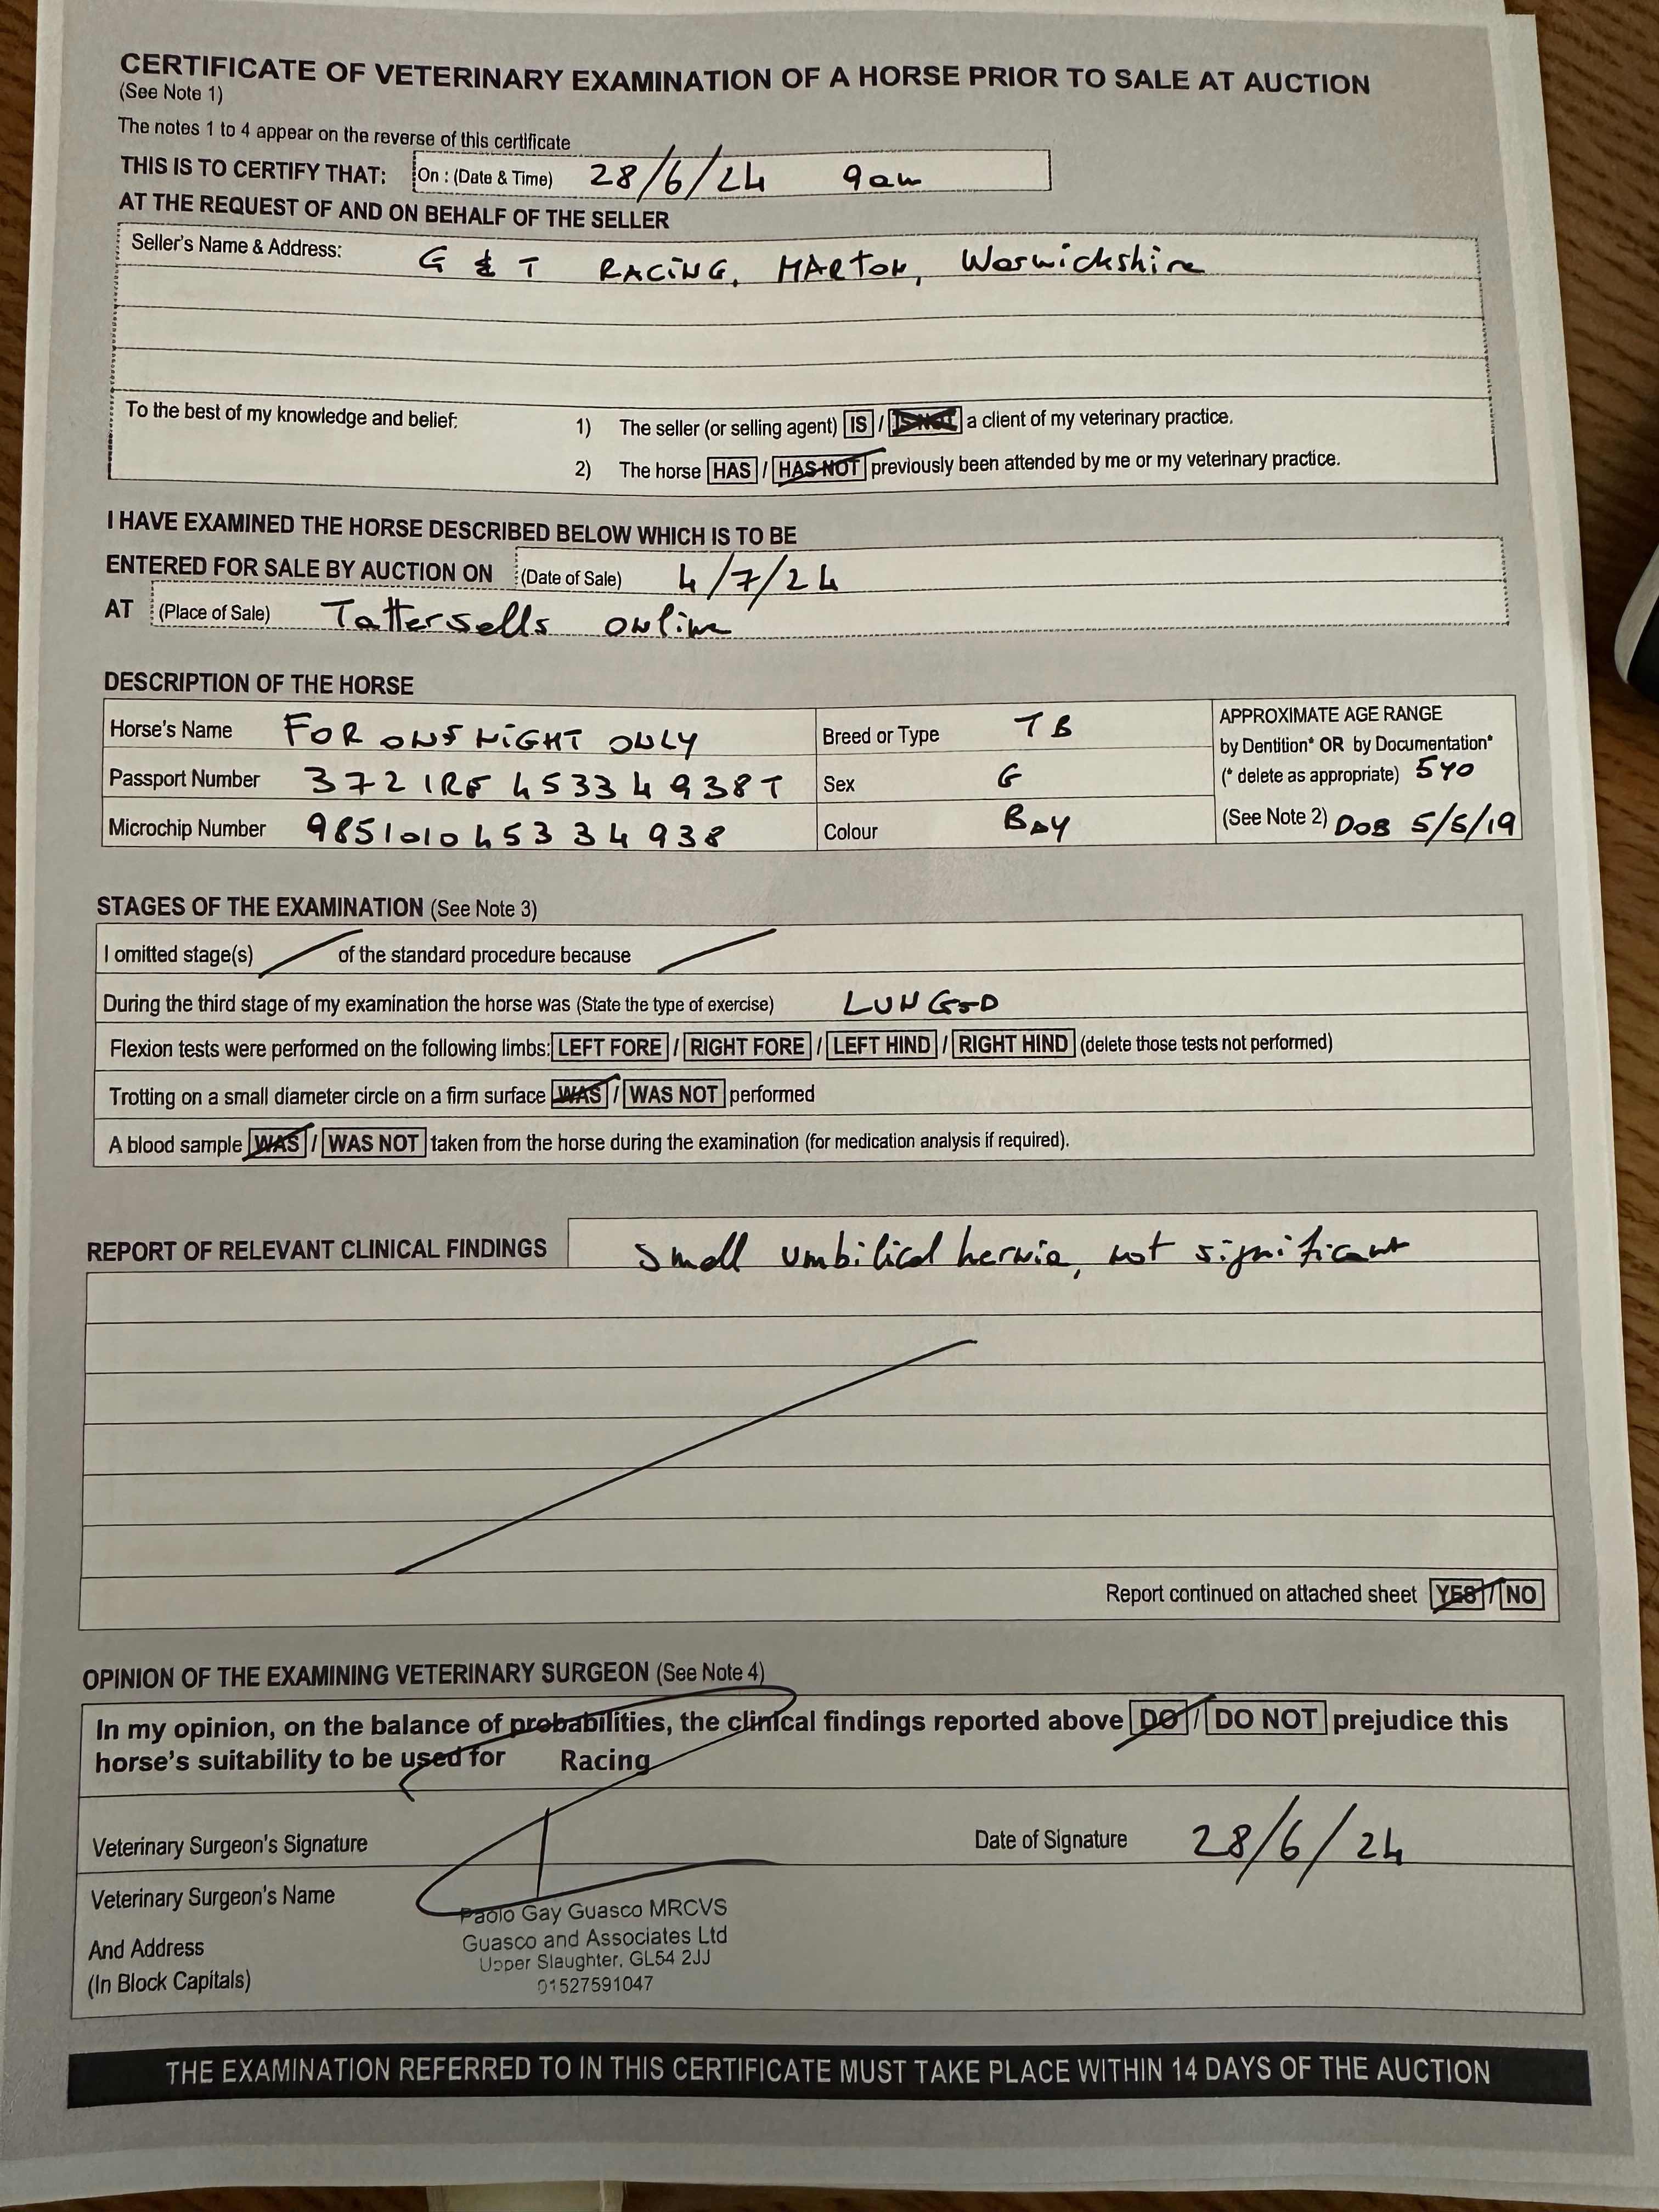 CERTIFICATE OF VETERINARY EXAMINATION OF A HORSE PRIOR TO SALE AT AUCTION
(See Note 1)
The notes 1 to 4 appear on the reverse of this certificate
THIS IS TO CERTIFY THAT: On : (Date & Time) 28/6/24 9am
AT THE REQUEST OF AND ON BEHALF OF THE SELLER
Seller's Name & Address: G & T RACING, MARTON, Warwickshire
To the best of my knowledge and belief: 1) The seller (or selling agent) IS / IS NOT a client of my veterinary practice.
2) The horse HAS / HAS NOT previously been attended by me or my veterinary practice.
I HAVE EXAMINED THE HORSE DESCRIBED BELOW WHICH IS TO BE
ENTERED FOR SALE BY AUCTION ON (Date of Sale) 4/7/24
AT (Place of Sale) Tattersells online
DESCRIPTION OF THE HORSE
Horse's Name FOR ONE NIGHT ONLY Breed or Type TB APPROXIMATE AGE RANGE
by Dentition* OR by Documentation*
Passport Number 372IRE45334938T Sex G (* delete as appropriate) 5YO
Microchip Number 985101045334938 Colour BAY (See Note 2) DOB 5/5/19
STAGES OF THE EXAMINATION (See Note 3)
I omitted stage(s) / of the standard procedure because /
During the third stage of my examination the horse was (State the type of exercise) LUNGED
Flexion tests were performed on the following limbs: LEFT FORE / RIGHT FORE / LEFT HIND / RIGHT HIND (delete those tests not performed)
Trotting on a small diameter circle on a firm surface WAS / WAS NOT performed
A blood sample WAS / WAS NOT taken from the horse during the examination (for medication analysis if required).
REPORT OF RELEVANT CLINICAL FINDINGS Small umbilical hernia, not significant
Report continued on attached sheet YES / NO
OPINION OF THE EXAMINING VETERINARY SURGEON (See Note 4)
In my opinion, on the balance of probabilities, the clinical findings reported above DO / DO NOT prejudice this
horse's suitability to be used for Racing
Veterinary Surgeon's Signature Date of Signature 28/6/24
Veterinary Surgeon's Name
Paolo Gay Guasco MRCVS
Guasco and Associates Ltd
And Address
Upper Slaughter, GL54 2JJ
(In Block Capitals)
01527591047
THE EXAMINATION REFERRED TO IN THIS CERTIFICATE MUST TAKE PLACE WITHIN 14 DAYS OF THE AUCTION